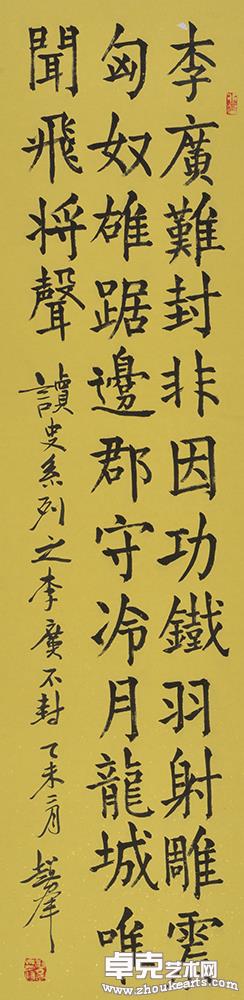 李廣難封非因功鐵羽射雕震
匈奴雄踞邊郡守冷月龍城唯
聞飛将聲
讀史系列之李廣不封 乙未二月
卓克艺术网
www.zhoukearts.com